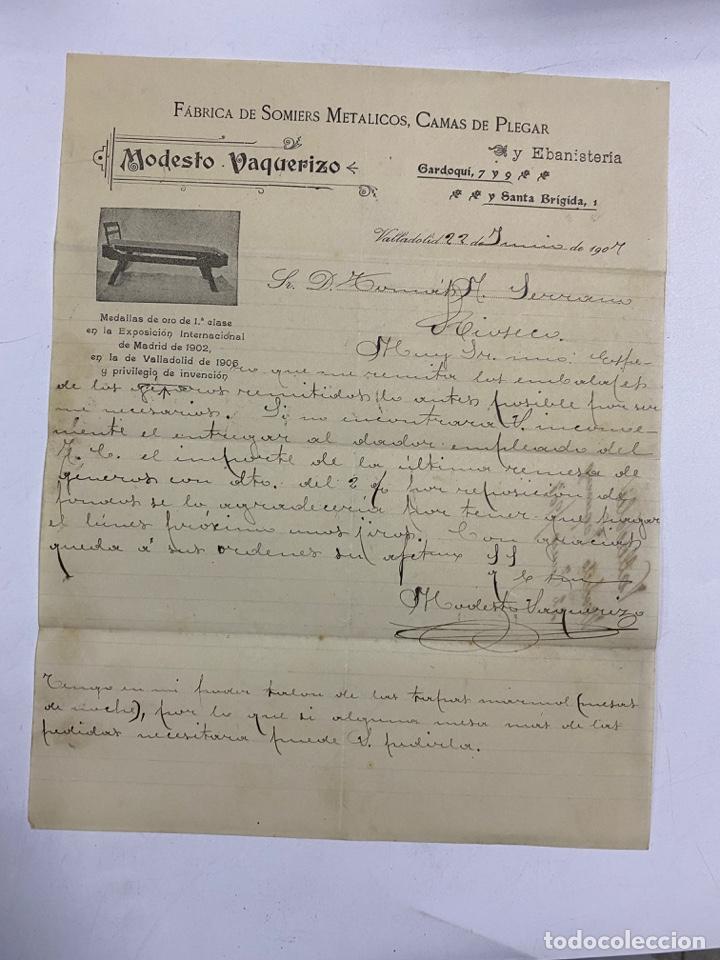 FÁBRICA DE SOMIERS METALICOS, CAMAS DE PLEGAR
y EBANISTERÍA
Modesto Vaquerizo
Gardoqui, 7 y 9
y Santa Brígida, 1
Valladolid 22 de Junio de 1907
Medallas de oro de 1.ª clase
en la Exposición Internacional
de Madrid de 1902,
en la de Valladolid de 1906
y privilegio de invención
Sr. D. Tomás A. Serrano
Rioseco.
Muy Sr. mio: Espe-
ro que me remita los embalajes
de los generos remitidos lo antes posible por ser
me necesarios. Si no encontrara V. inconve-
niente el entregar al dador empleado del
F. C. el importe de la última remesa de
generos con dto. del 2 % por reposición de
fondos se lo agradeceria por tener que pagar
el lúnes próximo unos jiros. Con gracias
queda á sus ordenes su afctmo SS
Modesto Vaquerizo
Tengo en mi poder talon de las tapas marmol (mesas
de noche), por lo que si alguna mesa mas de las
pedidas necesitara puede V. pedirla.
todocoleccion
todocoleccion.net